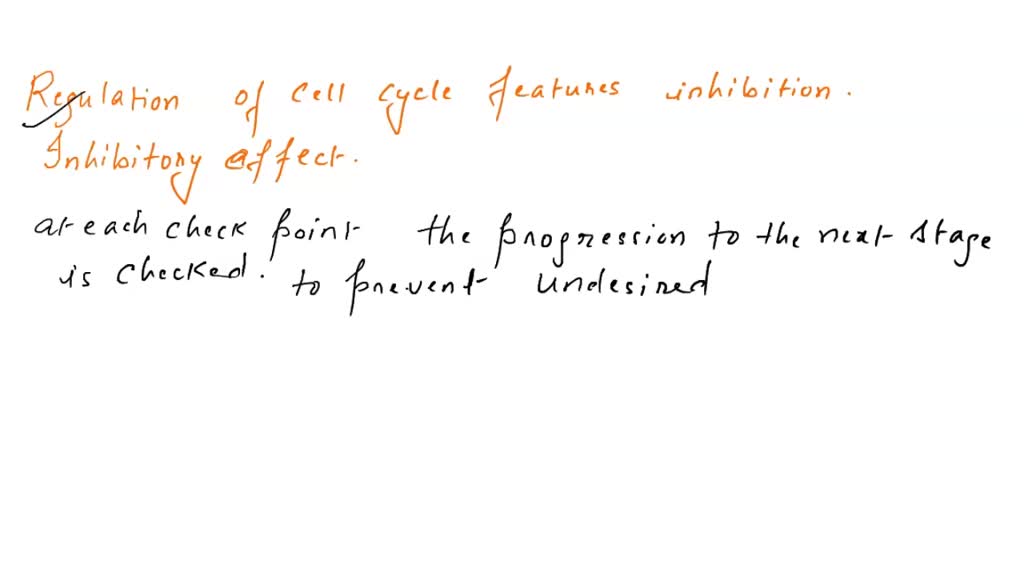 Regulation of cell cycle features inhibition.
Inhibitory affect.
at each check point the progression to the next stage
is checked. to prevent undesired